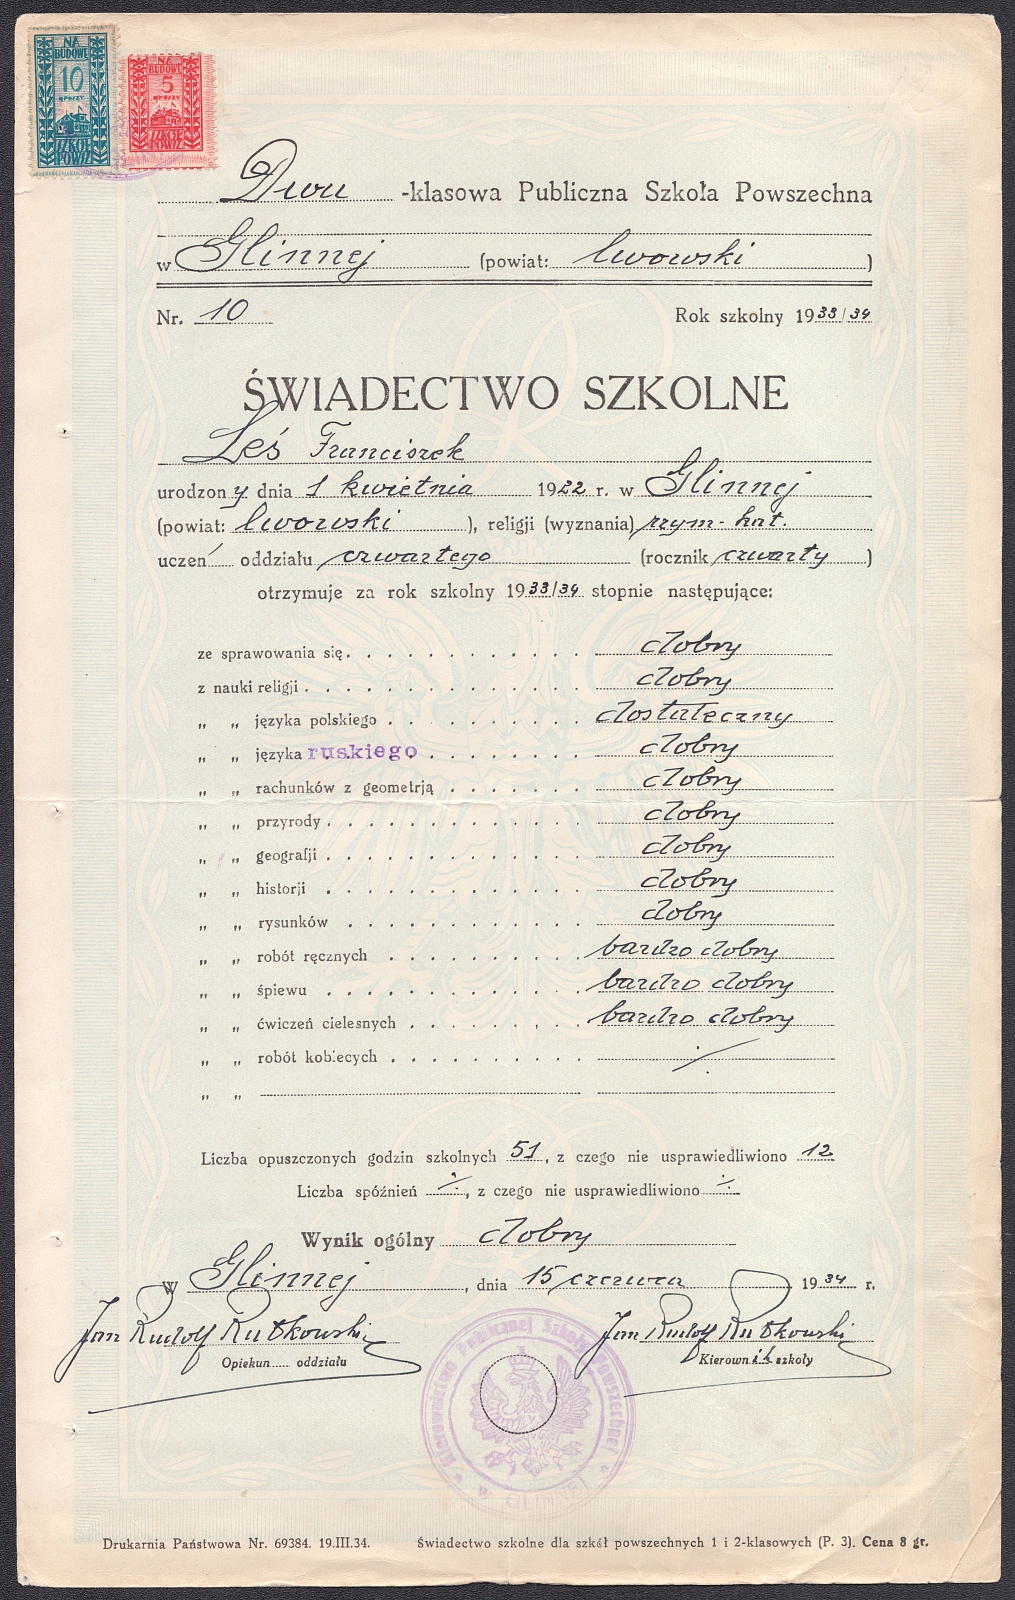 NA BUDOWĘ
10
groszy
SZKÓŁ POWSZ
NA BUDOWĘ
5
groszy
SZKÓŁ POWSZ
Dwu -klasowa Publiczna Szkoła Powszechna
w Glinnej (powiat: lwowski)
Nr. 10 Rok szkolny 1933/34
ŚWIADECTWO SZKOLNE
Leś Franciszek
urodzony dnia 1 kwietnia 1922 r. w Glinnej
(powiat: lwowski), religji (wyznania) rzym-kat.
uczeń oddziału czwartego (rocznik czwarty)
otrzymuje za rok szkolny 1933/34 stopnie następujące:
ze sprawowania się dobry
z nauki religji dobry
„ „ języka polskiego dostateczny
„ „ języka ruskiego dobry
„ „ rachunków z geometrją dobry
„ „ przyrody dobry
„ „ geografji dobry
„ „ historji dobry
„ „ rysunków dobry
„ „ robót ręcznych bardzo dobry
„ „ śpiewu bardzo dobry
„ „ ćwiczeń cielesnych bardzo dobry
„ „ robót kobiecych ·/·
„ „
Liczba opuszczonych godzin szkolnych 51, z czego nie usprawiedliwiono 12
Liczba spóźnień ·/·, z czego nie usprawiedliwiono ·/·
Wynik ogólny dobry
w Glinnej, dnia 15 czerwca 1934 r.
Jan Rudolf Rutkowski Jan Rudolf Rutkowski
Opiekun oddziału Kierownik szkoły
Kierownictwo Publicznej Szkoły Powszechnej
* w GLINNEJ *
Drukarnia Państwowa Nr. 69384. 19.III.34. Świadectwo szkolne dla szkół powszechnych 1 i 2-klasowych (P. 3). Cena 8 gr.